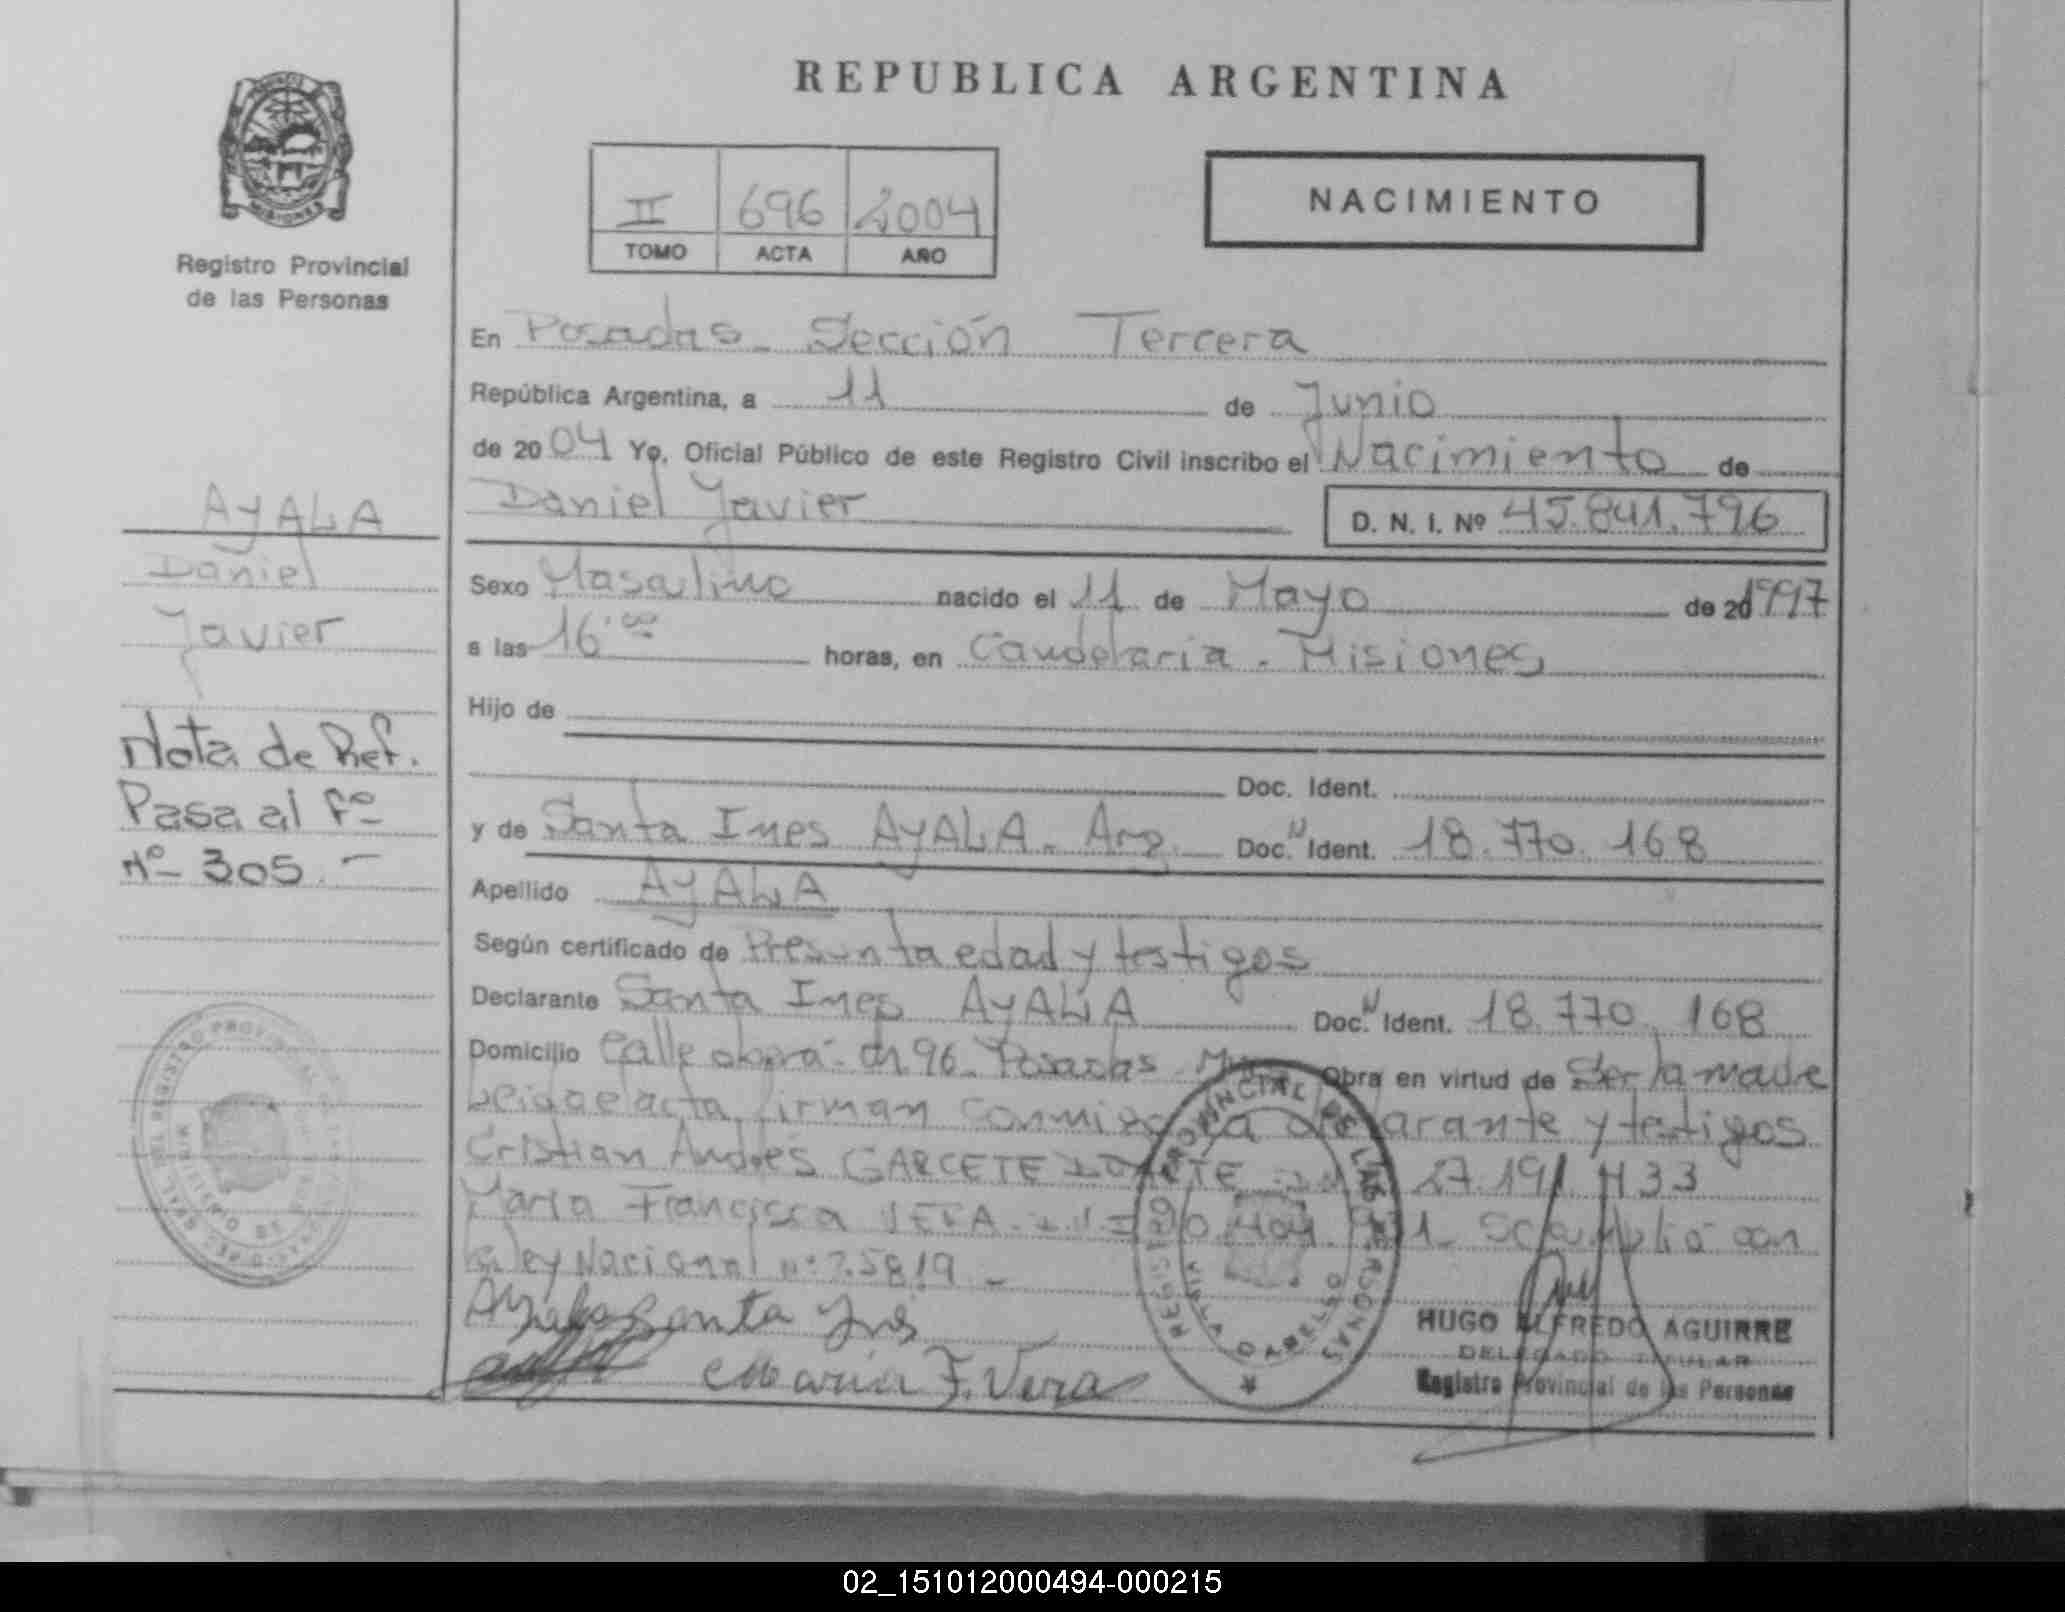 REPUBLICA ARGENTINA
Registro Provincial
de las Personas
II 696 2004
TOMO ACTA AÑO
NACIMIENTO
En Posadas - Sección Tercera
República Argentina, a 11 de Junio
de 2004 Yo, Oficial Público de este Registro Civil inscribo el Nacimiento de
Daniel Javier D. N. I. Nº 45.841.796
Sexo Masculino nacido el 11 de Mayo de 20 1997
a las 16:00 horas, en Candelaria - Misiones
Hijo de
Doc. Ident.
y de Santa Ines AYALA - Arg. Doc. N Ident. 18.770.168
Apellido AYALA
Según certificado de Presunta edad y testigos
Declarante Santa Ines AYALA Doc. N Ident. 18.770.168
Domicilio Calle 96 - Posadas Obra en virtud de Ser la madre
acta, firman conmigo la declarante y testigos
Cristian Andrés GARCETE 27.191.433
María Francisca VERA 1 - Se cumplió con
la ley Nacional nº 25819 -
Ayala Santa Ines
Maria F. Vera
HUGO ALFREDO AGUIRRE
DELEGADO TITULAR
Registro Provincial de las Personas
AYALA
Daniel
Javier
Nota de Ref.
Pasa al Fº
Nº 305 -
02_151012000494-000215